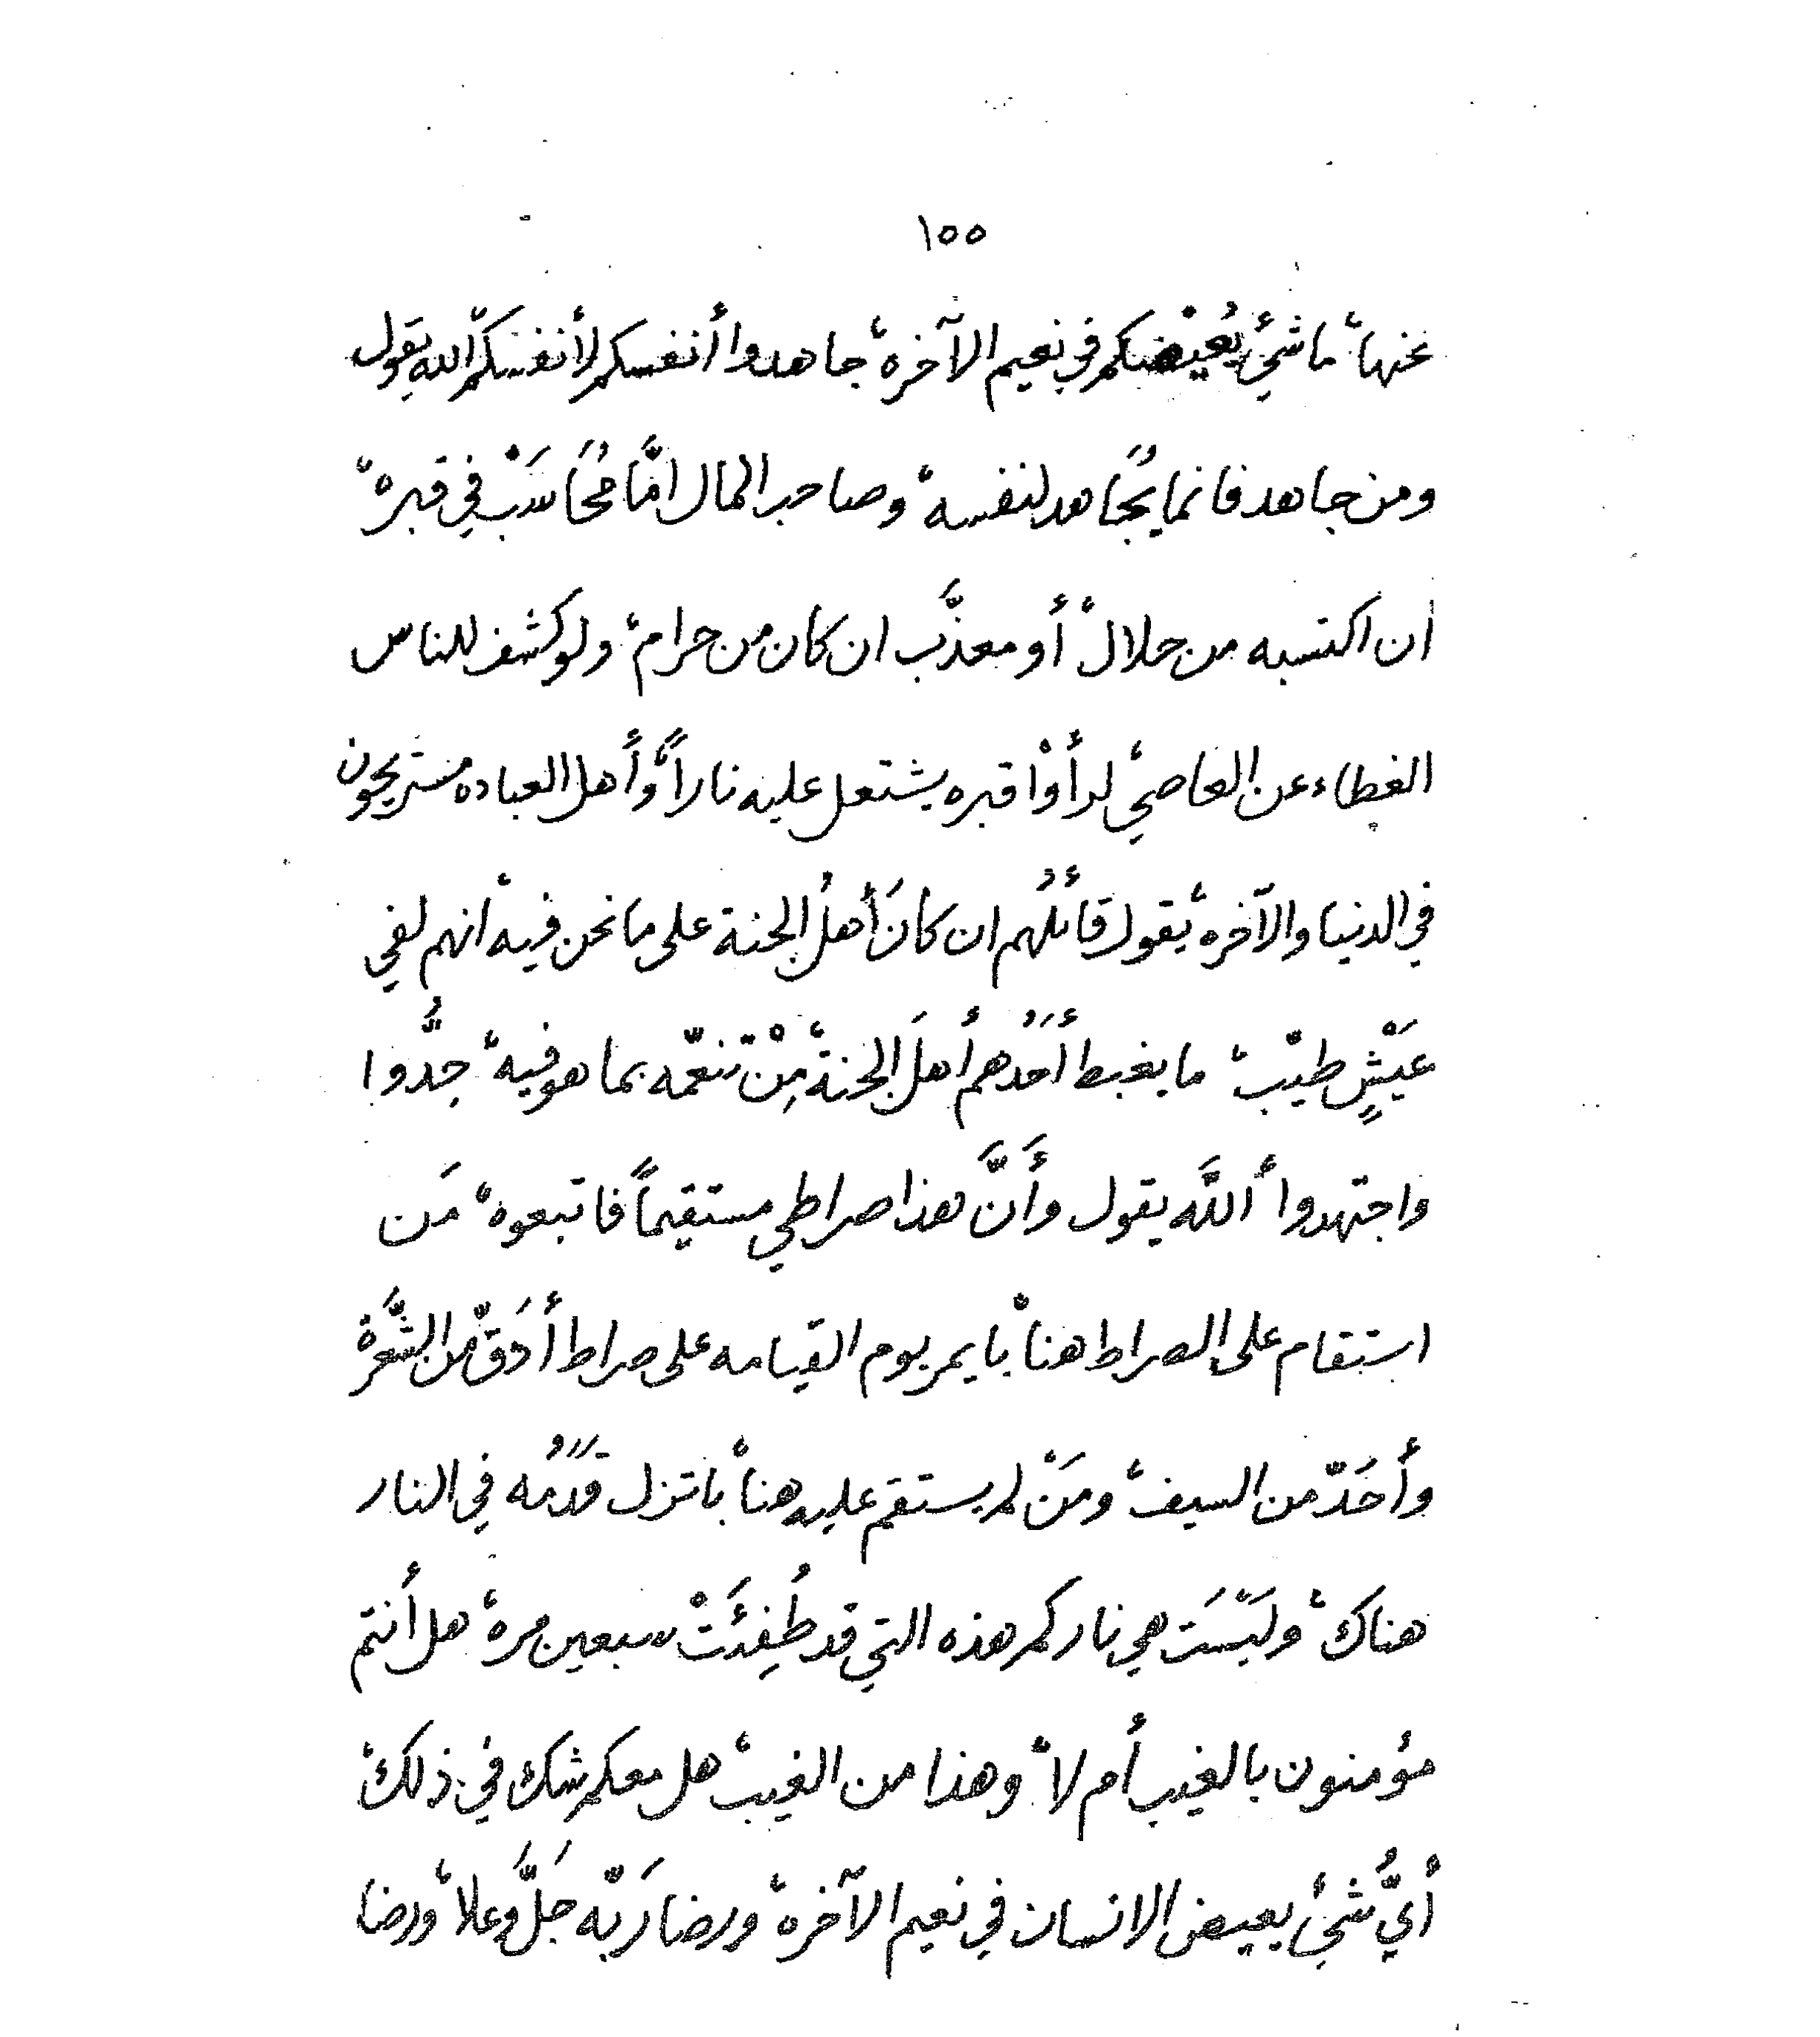 ١٥٥
عنها، ما شئ يُعيْضكم في نعيم الآخره، جاهدوا أنفسكم لأنفسكم، الله يقول
ومن جاهد فانما يُجَاهد لنفسه، وصاحب المال امَّا مُحَاسَبْ في قبره،
ان اكتسبه من حلال، أو معذَّب ان كان من حرام، ولو كشف للناس
الغطاء عن العاصي، لرأوْا قبره يشتعل عليه ناراً، وأَهل العباده مستريحون
في الدنيا والآخره، يقول قائلُهم ان كانَ أهلُ الجنة على ما نحن فيه، انهم لفي
عَيْشٍ طيّب، ما يغبط أَحَدُهم أهلَ الجنة، مِنْ تنعّمه بما هو فيه، جِدُّوا
واجتهدوا، أللَّه يقول وأَنَّ هذا صراطي مستقيماً فاتبعوه، مَن
استقام على الصراط هنا، بايمر يوم القيامه على صراط أدَقّ من الشَّعرة
وأحَدّ من السيف، ومَنْ لم يستقم عليه هنا، باتزل قَدَمُه في النار
هناك، وليْسَت هي ناركم هذه التي قد طُفِئَتْ سبعين مره، هل أنتم
مؤمنون بالغيب أم لا، وهذا من الغيب، هل معكم شك في ذلك،
أيُّ شئ يعيض الانسان في نعيم الآخره، ورضا رَبّه جَلَّ وعلا، ورضا